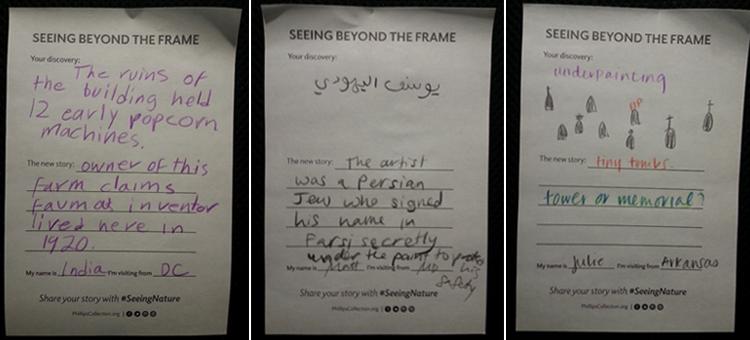 SEEING BEYOND THE FRAME
Your discovery:
The ruins of
the building held
12 early popcorn
machines.
The new story: owner of this
farm claims
inventor
lived here in
1920.
My name is India I'm visiting from DC
Share your story with #SeeingNature
PhillipsCollection.org |
SEEING BEYOND THE FRAME
Your discovery:
يوسف اليهودي
The new story: The artist
was a Persian
Jew who signed
his name in
Farsi secretly
under the paint to
his
safety
My name is Matt I'm visiting from MD
Share your story with #SeeingNature
PhillipsCollection.org |
SEEING BEYOND THE FRAME
Your discovery:
underpainting
RIP
The new story: tiny tombs.
tower or memorial?
My name is Julie I'm visiting from Arkansas
Share your story with #SeeingNature
PhillipsCollection.org |